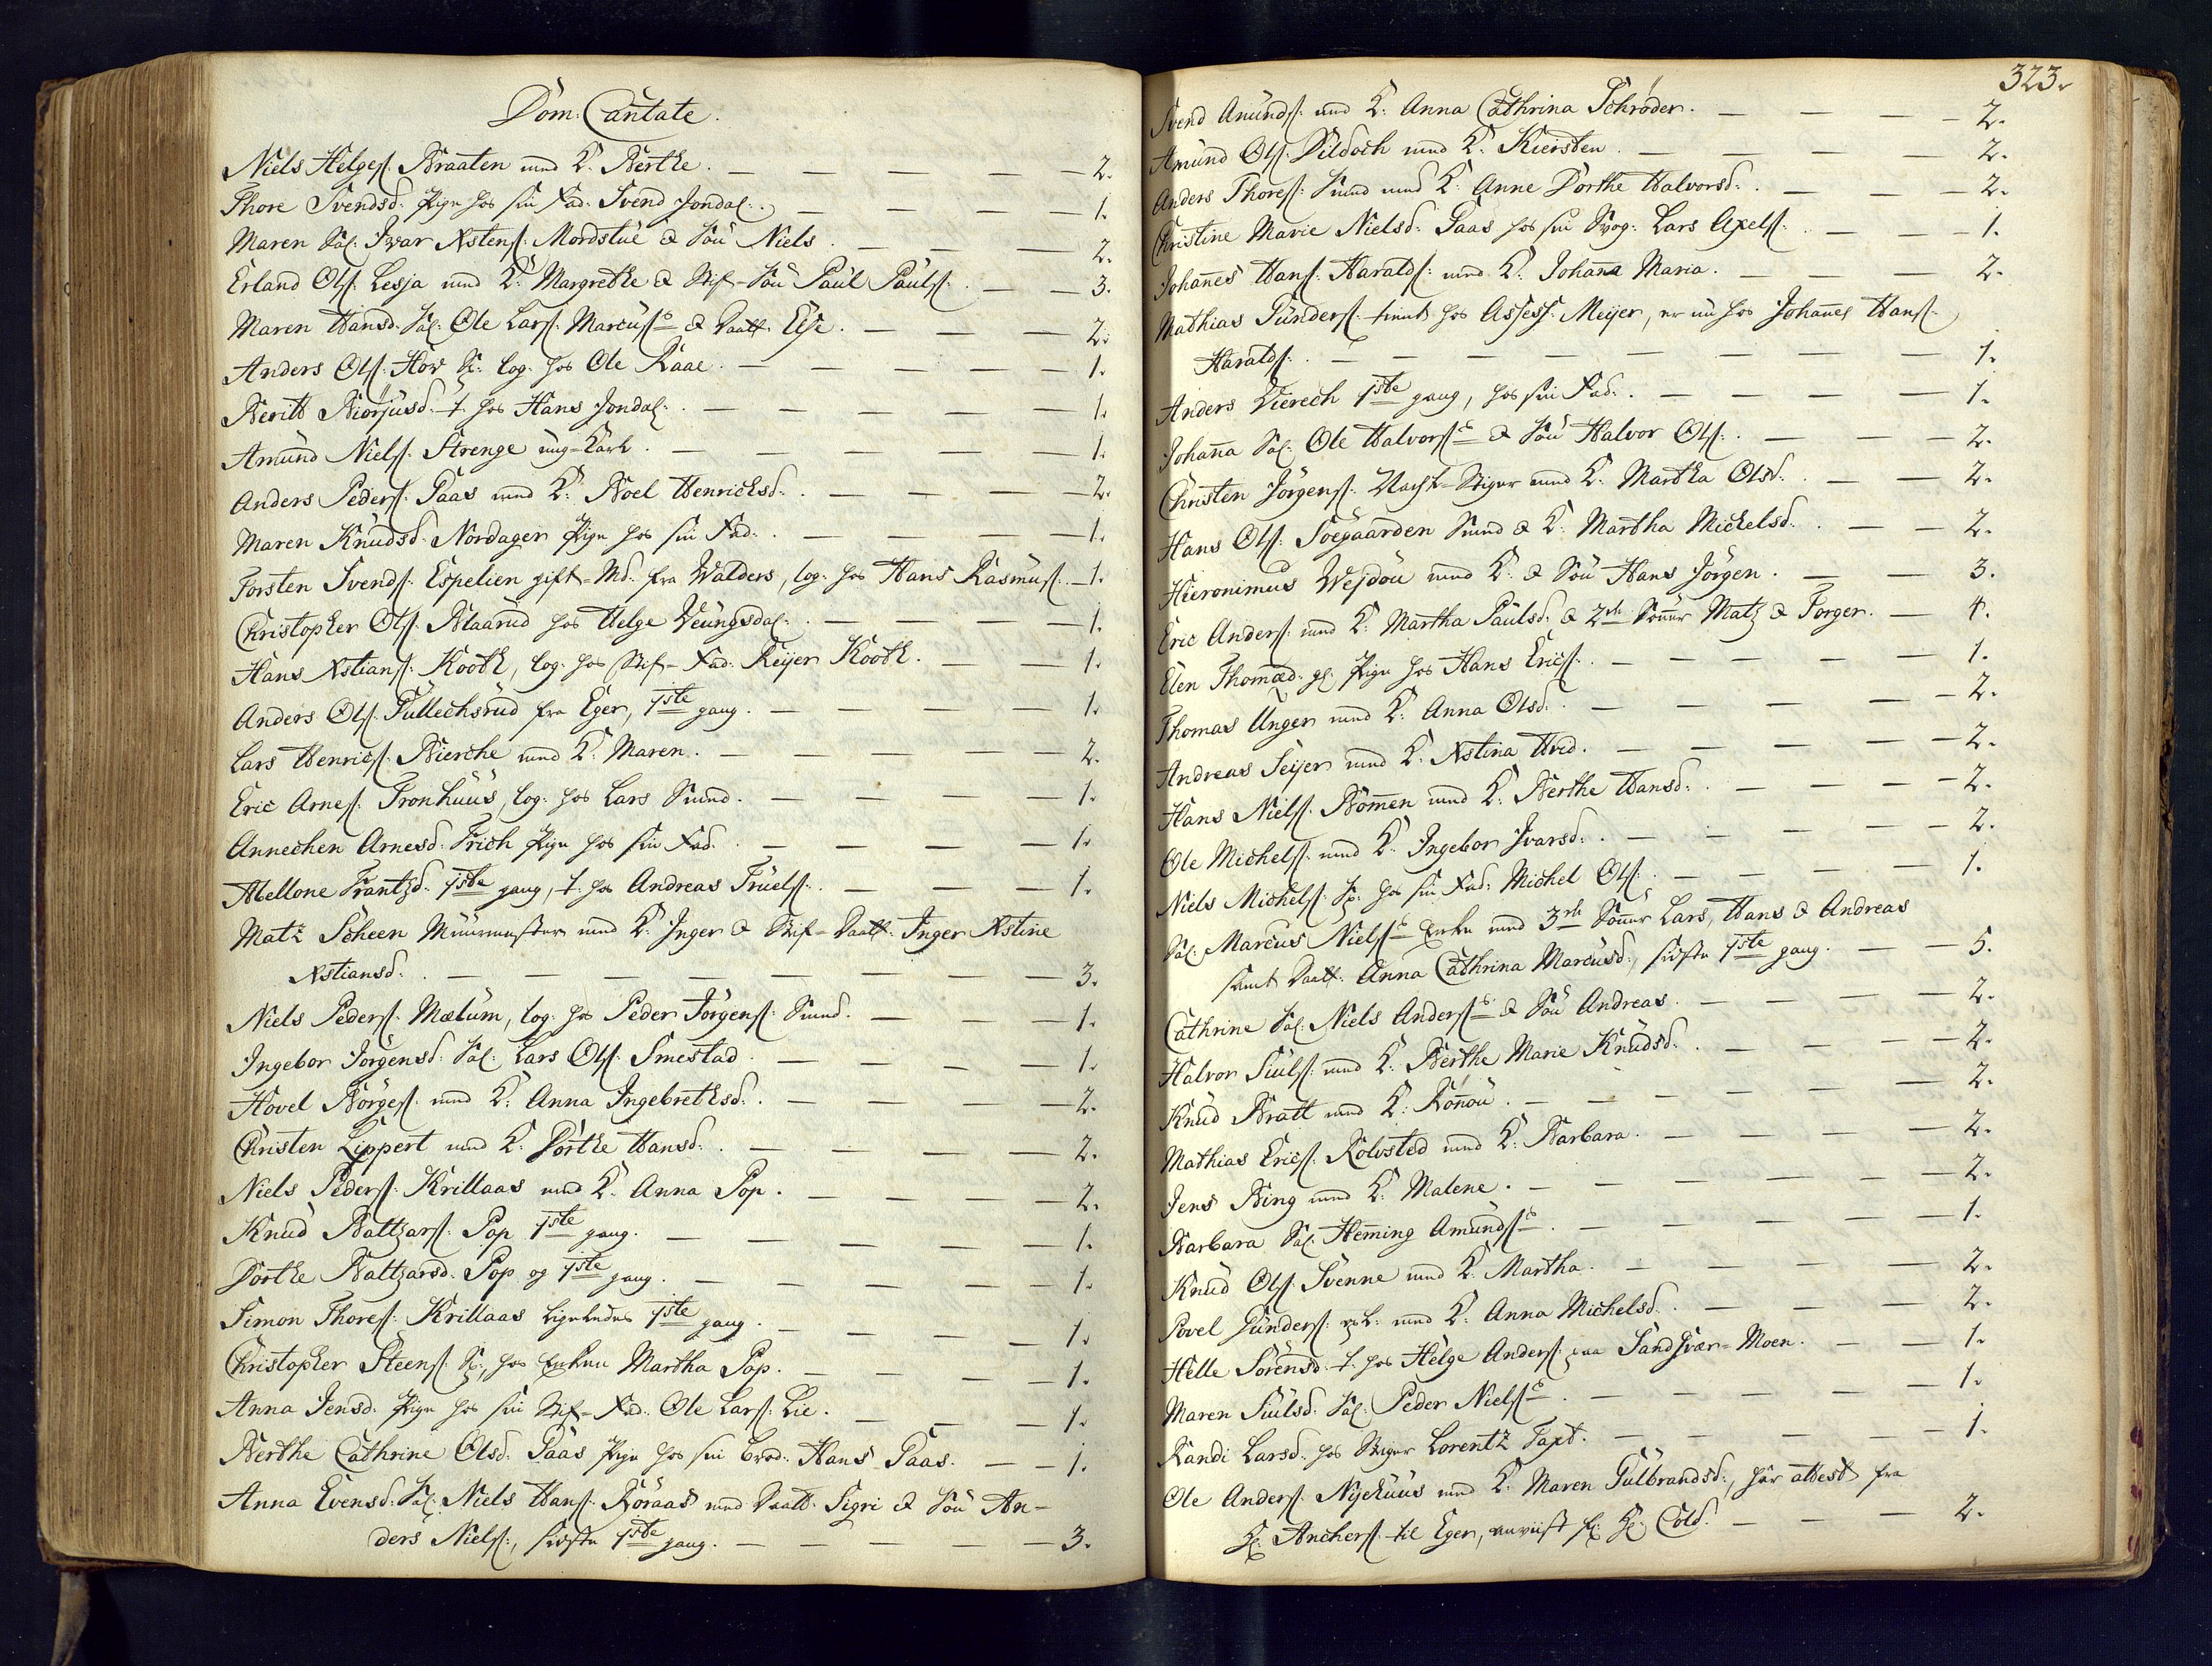 Dom: Cantate.
Niels Helges: Braaten med K: Berthe. — — — — 2.
Thore Svendsd: Pige hos sin Fad: Svend Jondal: — — — — 1.
Maren Sal: Iver Xstens: Mordstue & Søn Niels. — — — 2.
Erland Ols: Lesja med K: Margrethe & Stif-Søn Paul Pauls: — — 3.
Maren Hansd: Sal: Ole Lars: Marcus: & Daatt: Else. — — — 2.
Anders Ols: How S: log: hos Ole Raae. — — — — — 1.
Beritt Biørjusd: t. hos Hans Jondal: — — — — — 1.
Amund Niels: Strenge ung-Karl. — — — — — 1.
Anders Peders: Paas med K: Boel Henrichsd: — — — — 2.
Maren Knudsd: Nordagen Pige hos sin Fad: — — — — 1.
Torsten Svends: Espelien gift-Md: fra Walders, log: hos Hans Rasmus: — 1.
Christopher Ols: Blaarud hos Helge Veungsdal: — — — — 1.
Hans Xstians: Kooth, log: hos Stif-Fad: Reijer Kooth. — — — 1.
Anders Ols: Tullechsrud fra Eger, 1ste gang. — — — — 1.
Lars Henrics: Bierche med K: Maren. — — — — — 2.
Eric Arnes: Tronhuus, log: hos Lars Smed. — — — — 1.
Annechen Arnesd: Frich Pige hos sin Fad: — — — — 1.
Abellone Frantzd: 1ste gang, t. hos Andreas Truels: — — — 1.
Matz Scheen Muurmester med K: Inger & Stif-Daatt: Inger Xstine
Xstiansd: — — — — — — — 3.
Niels Peders: Mælum, log: hos Peder Jørgens: Smed. — — — 1.
Ingebor Jørgensd: Sal: Lars Ols: Smestad. — — — — 1.
Hovel Børges: med K: Anna Ingebrethsd: — — — 2.
Christen Lippert med K: Dorthe Hansd: — — — — 2.
Niels Peders: Krillaas med K: Anna Pop. — — — — 2.
Knud Baltzars: Pop 1ste gang. — — — — — 1.
Dorthe Baltzarsd: Pop og 1ste gang. — — — — — 1.
Simon Thores: Krillaas ligeledes 1ste gang. — — — — 1.
Christopher Steens: S:, hos Enken Martha Pop. — — — — 1.
Anna Jensd: Pige hos sin Stif-Fad: Ole Lars: Lie. — — — 1.
Berthe Cathrine Olsd: Paas Pige hos sin Brod: Hans Paas. — — 1.
Anna Evensd: Sal: Niels Hans: Røraas med Daatt: Sigri & Søn An-
ders Niels:, sidste 1ste gang. — — — — — 3.
323.
Svend Amunds: med K: Anna Cathrina Schrøder. — — — 2.
Amund Ols: Dildoch med K: Kiersten. — — — — 2.
Anders Thores: Smed med K: Anne Dorthe Halvorsd: — — — 2.
Christine Marie Nielsd: Paas hos sin Svog: Lars Axels: — — — 1.
Johannes Hans: Haralds: med K: Johanna Maria. — — — 2.
Mathias Gunders: tient hos Assess: Meijer, er nu hos Johannes Hans:
Haralds: — — — — — — — — 1.
Anders Vierech 1ste gang, hos sin Fad: — — — — 1.
Johanna Sal: Ole Halvors: & Søn Halvor Ols: — — — 2.
Christen Jørgens: Nacht-Stiger med K: Martha Olsd: — — 2.
Hans Ols: Soegaarden Smed & K: Martha Michelsd: — — 2.
Hieronimus Wejdou med K: & Søn Hans Jørgen. — — 3.
Eric Anders: med K: Martha Paulsd: & 2de Sønner Matz & Torger. — 4.
Elen Thomæd: gl: Pige hos Hans Erics: — — — — 1.
Thomas Unger med K: Anna Olsd: — — — — — 2.
Andreas Seijer med K: Xstina Hvid. — — — — — 2.
Hans Niels: Bommen med K: Berthe Hansd: — — — — 2.
Ole Michels: med K: Ingebor Ivarsd: — — — — 2.
Niels Michels: S: hos sin Fad: Michel Ols: — — — — 1.
Sal: Marcus Niels: Enke med 3de Sønner Lars, Hans & Andreas
samt Daatt: Anna Cathrina Marcusd:, sidste 1ste gang. — — 5.
Cathrine Sal: Niels Anders: & Søn Andreas. — — — — 2.
Halvor Siuls: med K: Berthe Marie Knudsd: — — — — 2.
Knud Bratt med K: Rønnou. — — — — — 2.
Mathias Erics: Kolvsted med K: Barbara. — — — — 2.
Jens Bing med K: Malene. — — — — — 2.
Barbara Sal: Heming Amunds: — — — — — 1.
Knud Ols: Svenne med K: Martha. — — — — 2.
Povel Gunders: med K: Anna Michelsd: — — — — 2.
Helle Sørensd: t. hos Helge Anders: paa Sandsvær-Moen. — — 1.
Maren Siulsd: Sal: Peder Niels: — — — — — 1.
Randi Larsd: hos Stiger Lorentz Tapt. — — — — 1.
Ole Anders: Nyehuus med K: Maren Gulbrandsd:, har attest fra
Hr: Anchers: til Eger, anviist Hr: Cold. — — — 2.